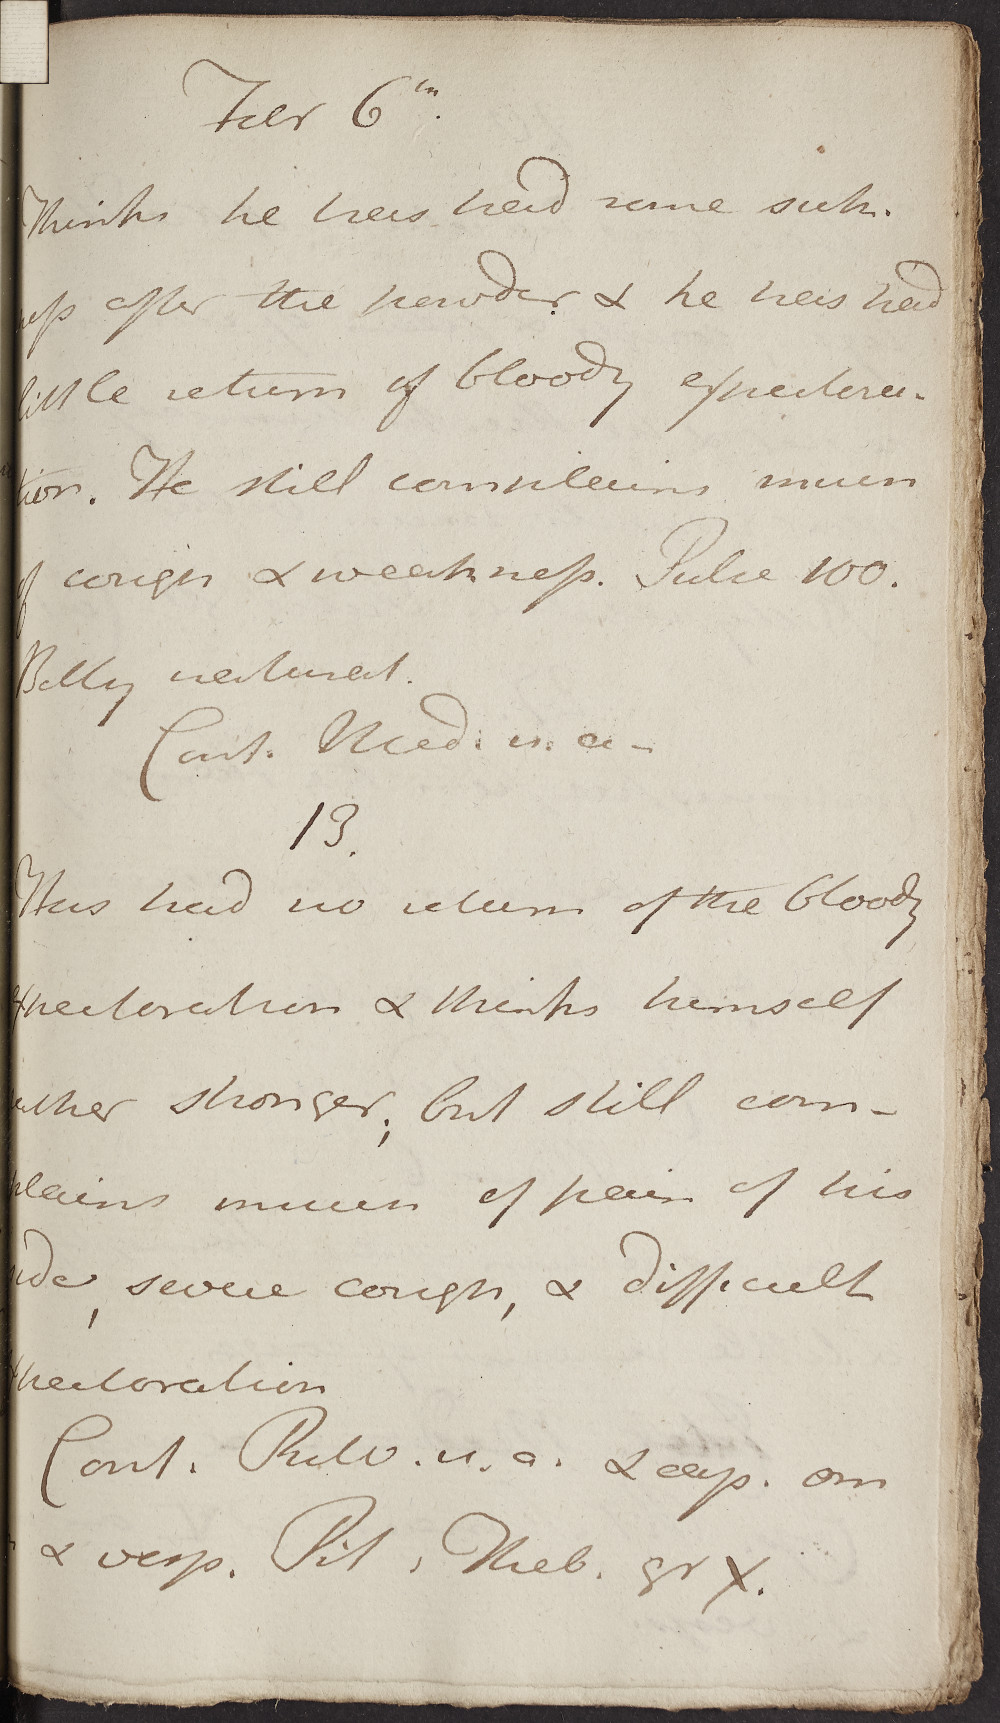 Febr 6th.
Thinks he has had some sick-
ness after the powder, & he has had
little return of bloody expectora-
tion. He still complains much
of cough & weakness. Pulse 100.
Belly natural.
Cont. Med. u. a-
13.
Has had no return of the bloody
expectoration & thinks himself
rather stronger; but still com-
plains much of pain of his
side, severe cough, & difficult
expectoration
Cont. Pulv. u. a. & cap. om
& vesp. Pil. Theb. gr X.